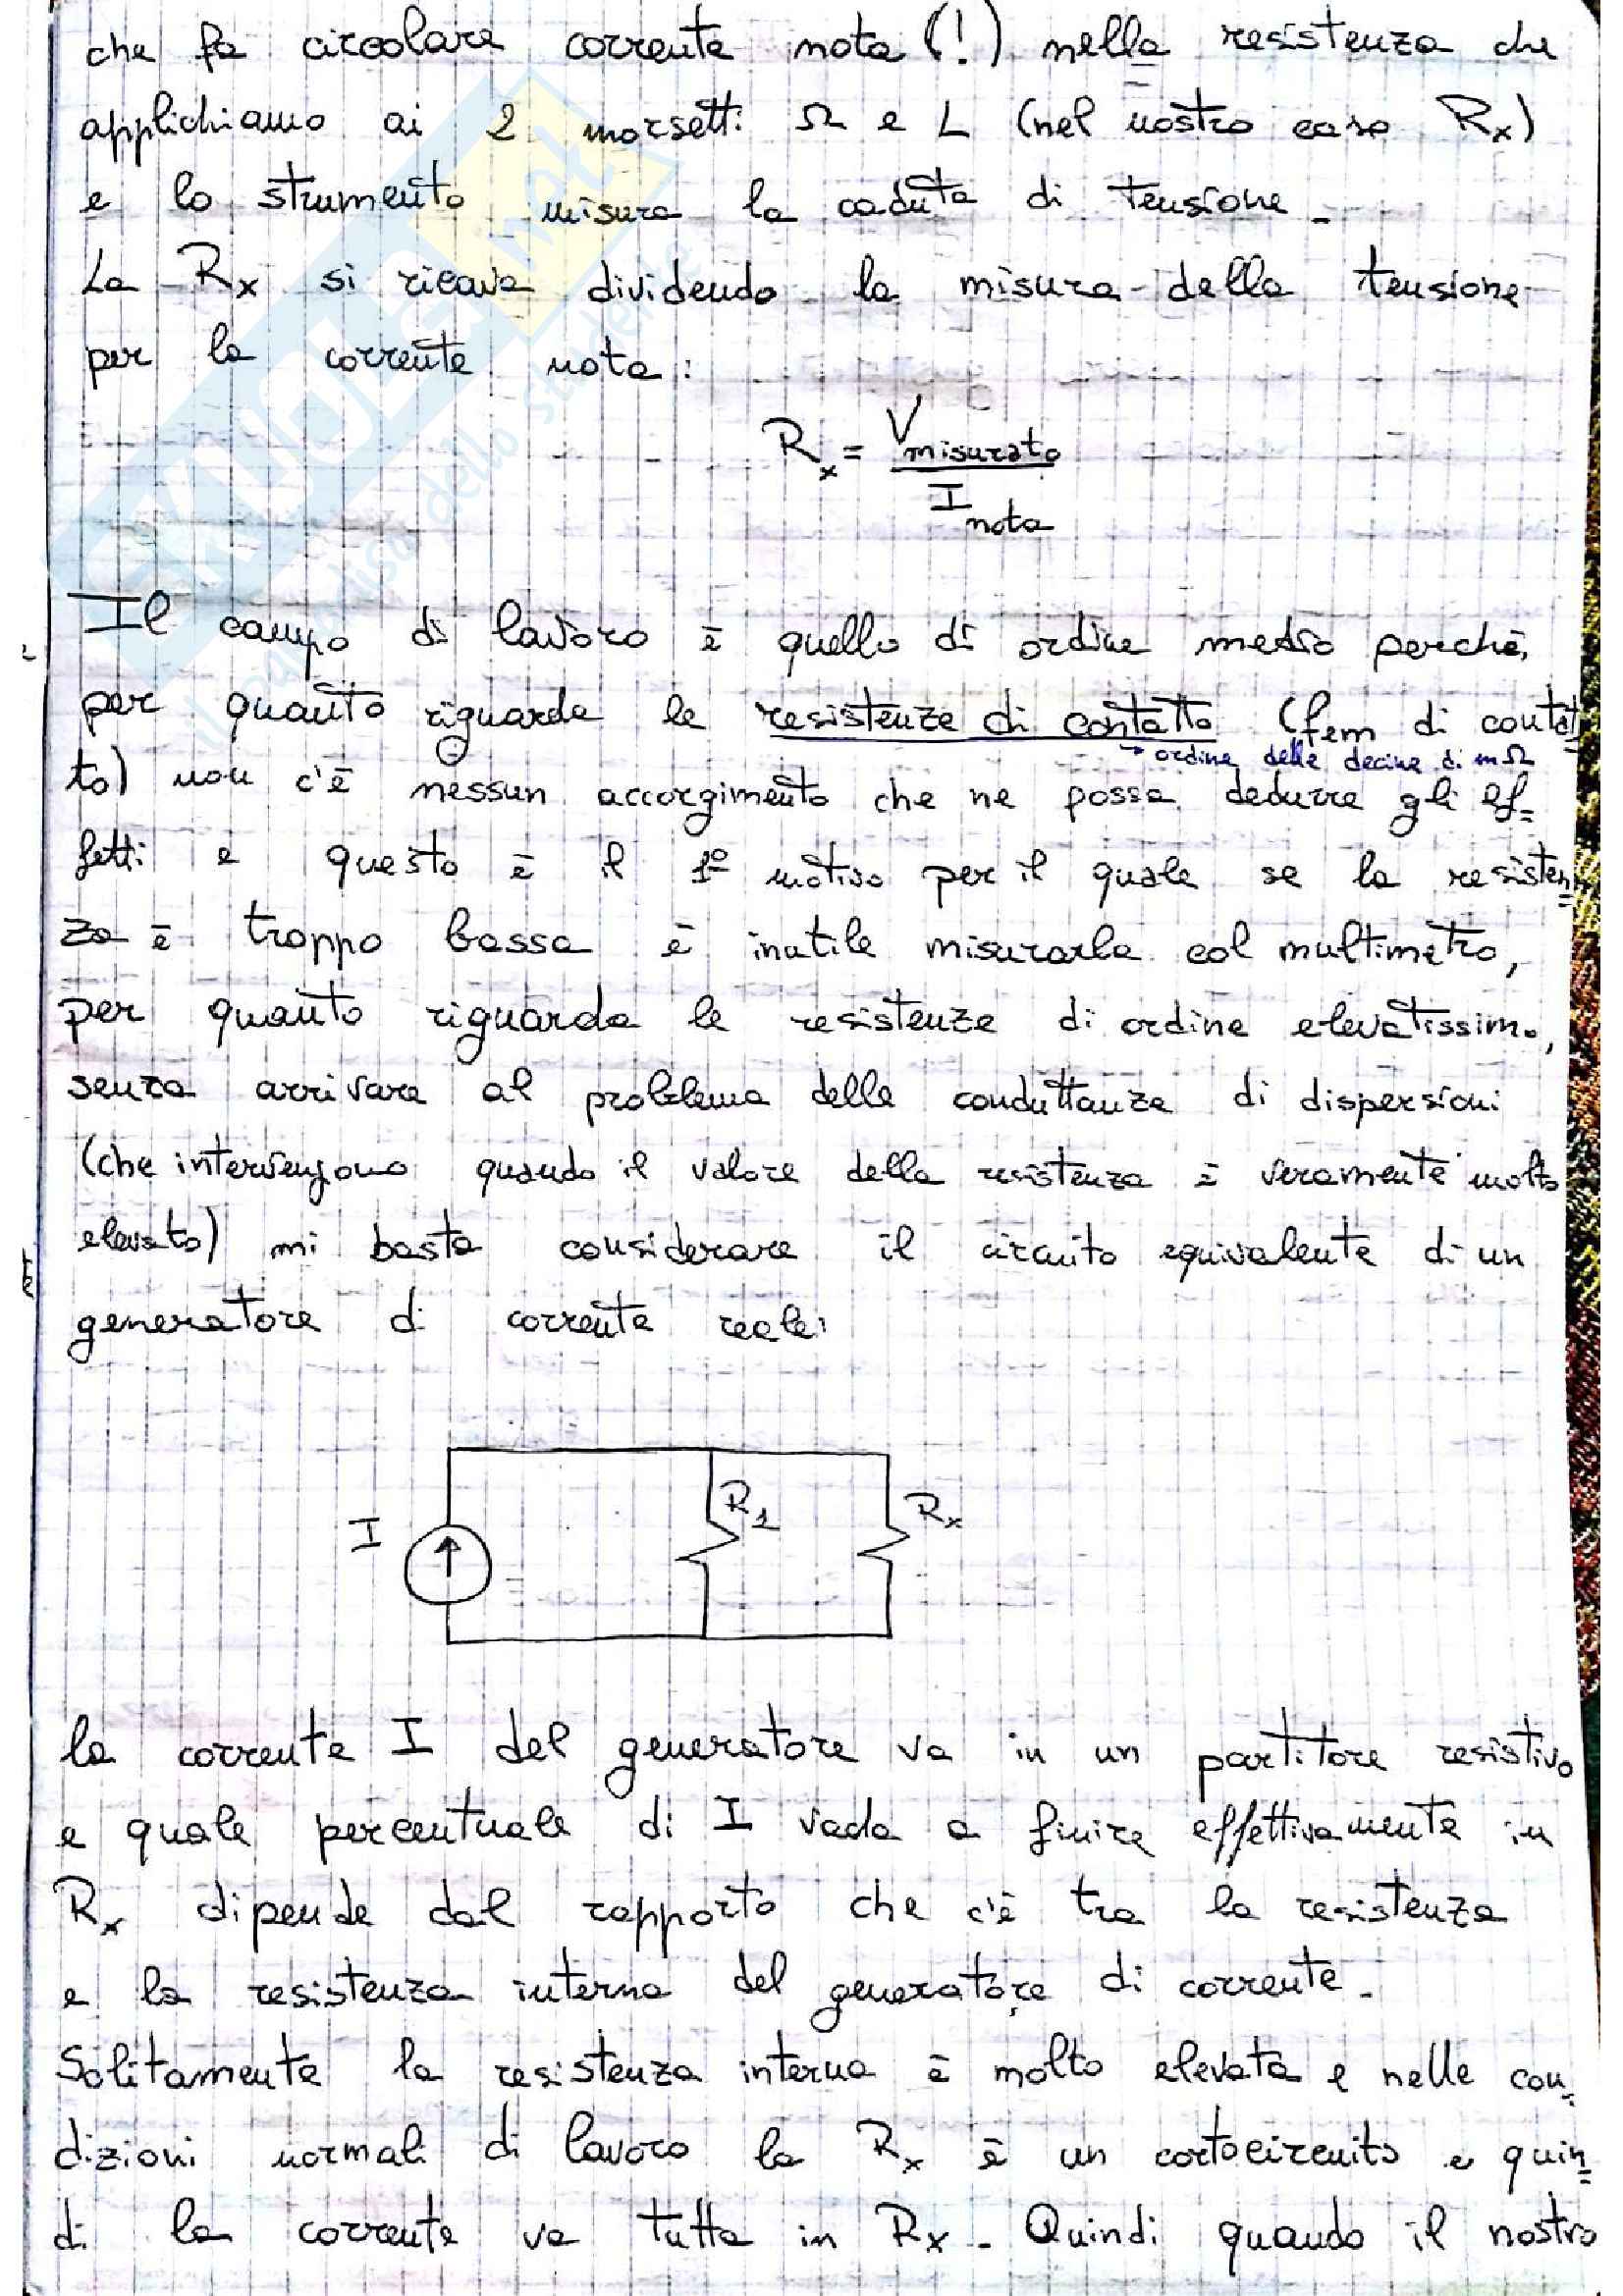 che fa circolare corrente nota (!) nella resistenza che
applichiamo ai 2 morsetti Ω e L (nel nostro caso Rx)
e lo strumento misura la caduta di tensione.
La Rx si ricava dividendo la misura della tensione
per la corrente nota:
Rx = Vmisurato
Inota
Il campo di lavoro è quello di ordine medio perché,
per quanto riguarda le resistenze di contatto (fem di contat=
→ ordine delle decine di mΩ
to) non c'è nessun accorgimento che ne possa dedurre gli ef=
fetti e questo è il 1° motivo per il quale se la resisten=
za è troppo bassa è inutile misurarla col multimetro,
per quanto riguarda le resistenze di ordine elevatissimo,
senza arrivare al problema delle conduttanze di dispersioni
(che intervengono quando il valore della resistenza è veramente molto
elevato) mi basta considerare il circuito equivalente di un
generatore di corrente reale:
I
R1
Rx
la corrente I del generatore va in un partitore resistivo
e quale percentuale di I vada a finire effettivamente in
Rx dipende dal rapporto che c'è tra la resistenza
e la resistenza interna del generatore di corrente.
Solitamente la resistenza interna è molto elevata e nelle con=
dizioni normali di lavoro la Rx è un cortocircuito e quin=
di la corrente va tutta in Rx. Quindi quando il nostro
SKUOLA.net